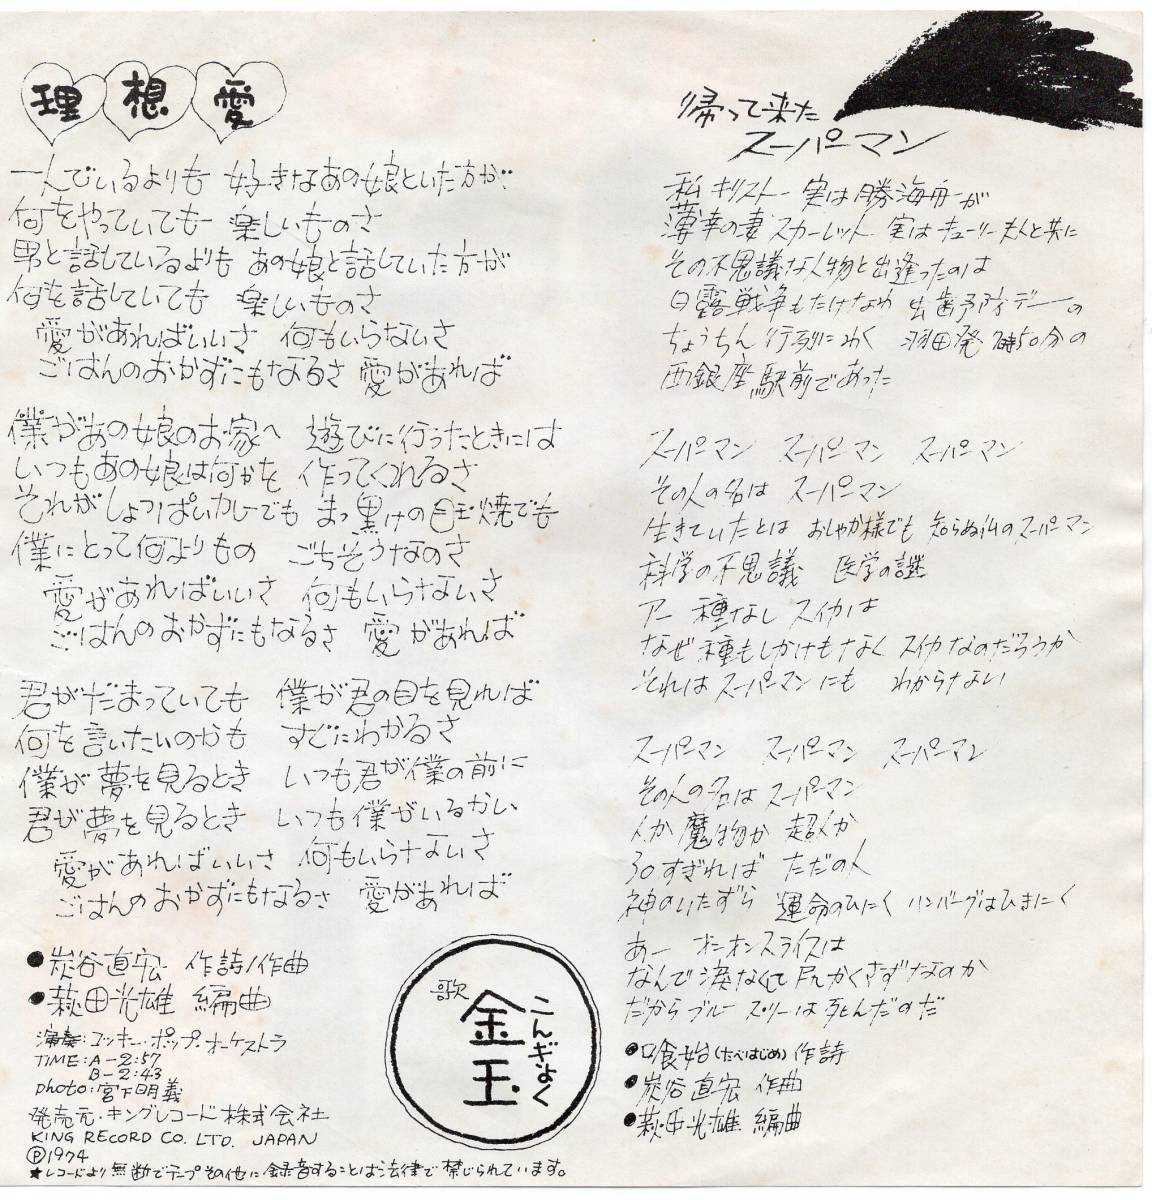 理想愛
一人でいるよりも 好きなあの娘といた方が
何をやっていても 楽しいものさ
男と話しているよりも あの娘と話していた方が
何を話していても 楽しいものさ
愛があればいいさ 何もいらないさ
ごはんのおかずにもなるさ 愛があれば
僕があの娘のお家へ 遊びに行ったときには
いつもあの娘は何かを 作ってくれるさ
それがしょっぱいカレーでも まっ黒けの目玉焼でも
僕にとって何よりもの ごちそうなのさ
愛があればいいさ 何もいらないさ
ごはんのおかずにもなるさ 愛があれば
君がだまっていても 僕が君の目を見れば
何を言いたいのかも すぐにわかるさ
僕が夢を見るとき いつも君が僕の前に
君が夢を見るとき いつも僕がいるかい
愛があればいいさ 何もいらないさ
ごはんのおかずにもなるさ 愛があれば
●炭谷直宏 作詩/作曲
●萩田光雄 編曲
演奏:コッキー・ポップ・オーケストラ
TIME:A-2:57
B-2:43
photo:宮下明義
発売元・キングレコード株式会社
KING RECORD CO. LTD. JAPAN
Ⓟ1974
★レコードより無断でテープその他に録音することは法律で禁じられています。
歌
金玉
こんぎょく
帰って来た
スーパーマン
私 キリスト 実は勝海舟が
薄幸の妻 スカーレット 実はキューリー夫人と共に
その不思議な人物と出逢ったのは
日露戦争もたけなわ 出歯予防デーの
ちょうちん行列にわく 羽田発7時50分の
西銀座駅前であった
スーパーマン スーパーマン スーパーマン
その人の名は スーパーマン
生きていたとは おしゃか様でも 知らぬ仏のスーパーマン
科学の不思議 医学の謎
アー 種なし スイカは
なぜ種もしかけもなく スイカなのだろうか
それは スーパーマンにも わからない
スーパーマン スーパーマン スーパーマン
その人の名は スーパーマン
人か魔物か 超人か
30すぎれば ただの人
神のいたずら 運命のひにく ハンバーグはひきにく
あー オニオンスライスは
なんで涙なくして 尻かくさずなのか
だからブルース・リーは死んだのだ
●喰始(たべはじめ)作詩
●炭谷直宏 作曲
●萩田光雄 編曲